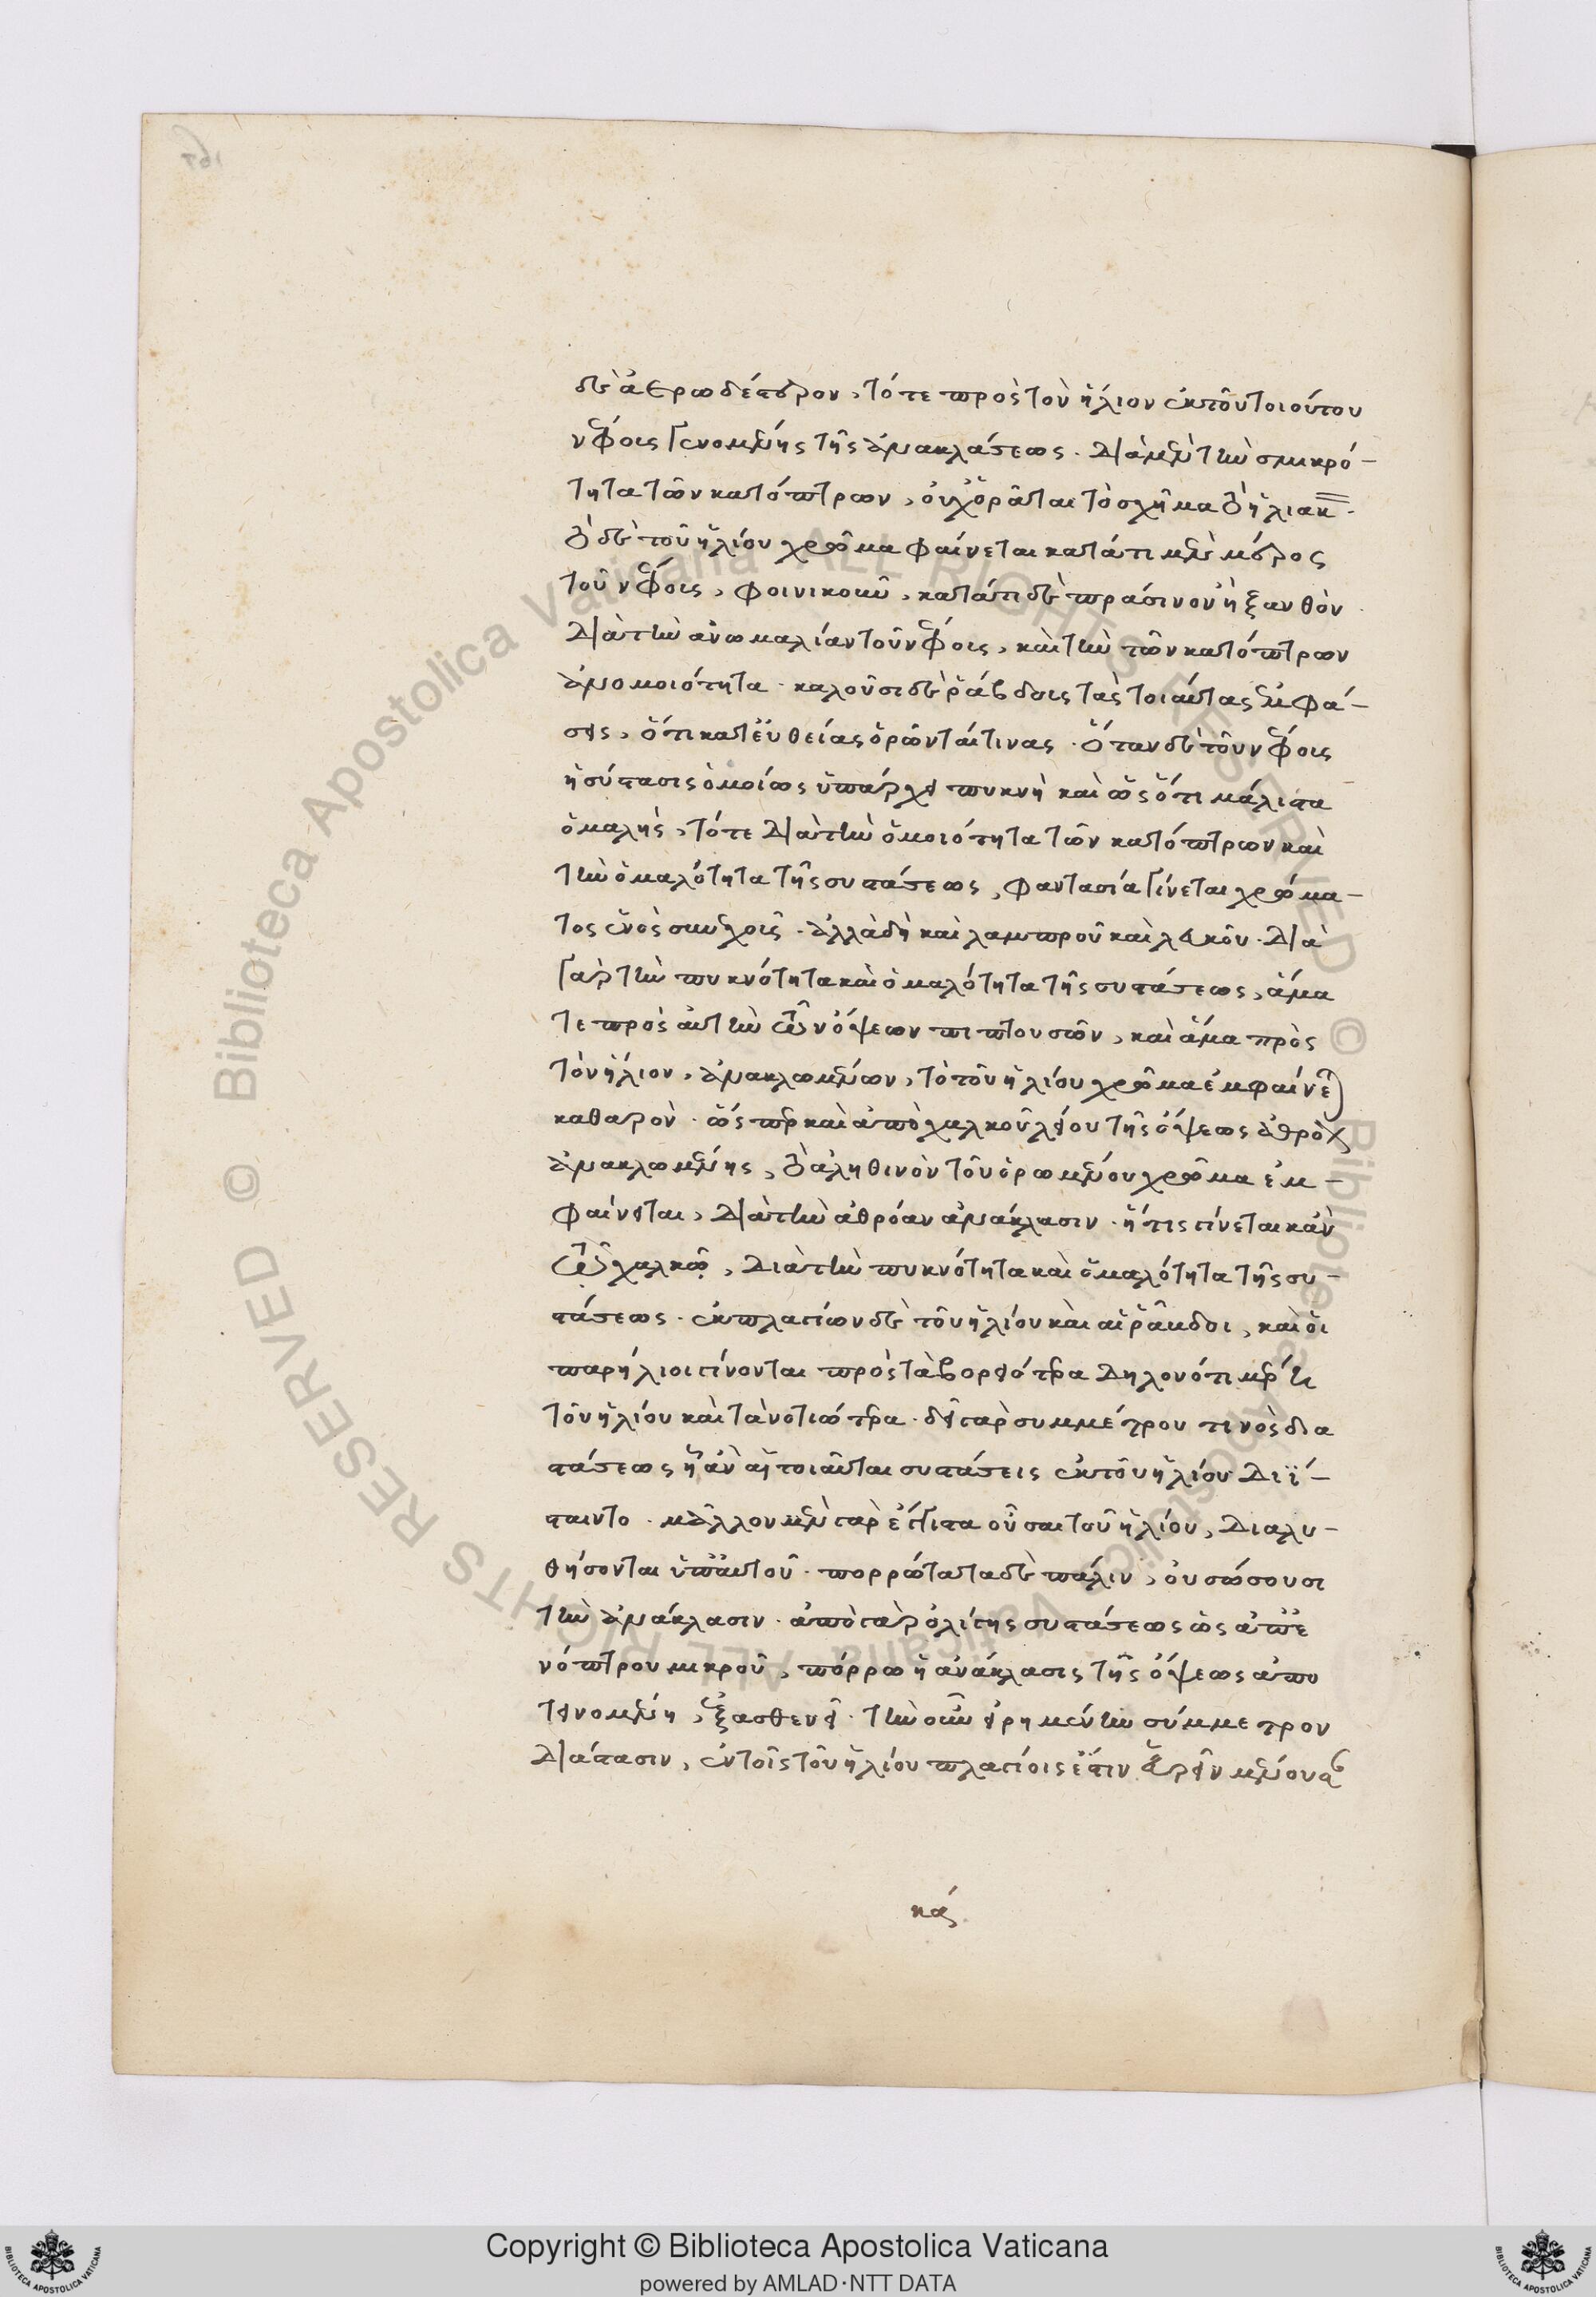 δὲ ἀερωδέστερον, τότε πρὸς τὸν ἥλιον ἐκ τοῦ τοιούτου
νέφους γενομένης τῆς ἀνακλάσεως. διὰ μὲν τὴν σμικρό-
τητα τῶν κατόπτρων, οὐχ ὁρᾶται τὸ σχῆμα τὸ ἡλιακ.
τὸ δὲ τοῦ ἡλίου χρῶμα φαίνεται κατά τι μὲν μέρος
τοῦ νέφους, φοινικοῦν, κατά τι δὲ πράσινον ἢ ξανθὸν.
διὰ τὴν ἀνωμαλίαν τοῦ νέφους, καὶ τὴν τῶν κατόπτρων
ἀνομοιότητα. καλοῦσι δὲ ῥάβδους τὰς τοιαύτας ἐμφά-
σεις, ὅτι κατ' εὐθείας ὁρῶνταί τινας. ὅταν δὲ τοῦ νέφους
ἡ σύστασις ὁμοίως ὑπάρχει πυκνὴ καὶ ὡς ὅτι μάλιστα
ὁμαλὴς, τότε διὰ τὴν ὁμοιότητα τῶν κατόπτρων καὶ
τὴν ὁμαλότητα τῆς συστάσεως, φαντασία γίνεται χρώμα-
τος ἑνὸς συνεχοῦς. ἀλλὰ δὴ καὶ λαμπροῦ καὶ λευκοῦ. διὰ
γὰρ τὴν πυκνότητα καὶ ὁμαλότητα τῆς συστάσεως, ἅμα
τε πρὸς αὐτὴν τῶν ὄψεων πιπτουσῶν, καὶ ἅμα πρὸς
τὸν ἥλιον, ἀνακλωμένων, τὸ τοῦ ἡλίου χρῶμα ἐμφαίνεται
καθαρὸν. ὥσπερ καὶ ἀπὸ χαλκοῦ λείου τῆς ὄψεως ἀθρόας
ἀνακλωμένης, τὸ ἀληθινὸν τοῦ ὁρωμένου χρῶμα ἐμ-
φαίνεται, διὰ τὴν ἀθρόαν ἀνάκλασιν. ἥτις γίνεται κἀν
τῷ χαλκῷ, διὰ τὴν πυκνότητα καὶ ὁμαλότητα τῆς συ-
στάσεως. ἐκ πλαγίων δὲ τοῦ ἡλίου καὶ αἱ ῥάβδοι, καὶ οἱ
παρήλιοι γίνονται πρὸς τὰ βορειότερα δηλονότι μέρη
τοῦ ἡλίου καὶ τὰ νοτιώτερα. δεῖ γὰρ συμμέτρου τινὸς δια
στάσεως ἣν ἂν αἱ τοιαῦται συστάσεις ἐκ τοῦ ἡλίου διΐ-
σταιντο. μᾶλλον μὲν γὰρ ἔγγιστα οὖσαι τοῦ ἡλίου, διαλυ-
θήσονται ὑπ' αὐτοῦ. πορρώτατα δὲ πάλιν, οὐ σώσουσι
τὴν ἀνάκλασιν. ἀπὸ γὰρ ὀλίγης συστάσεως ὡς ἀπ' ἐ
νόπτρου μικροῦ, πόρρω ἡ ἀνάκλασις τῆς ὄψεως ἀπο
τεινομένη, ἐξασθενεῖ. τὴν οὖν εἰρημένην σύμμετρον
διάστασιν, ἐν τοῖς τοῦ ἡλίου πλαγίοις ἔστιν εὑρεῖν μένουσαν